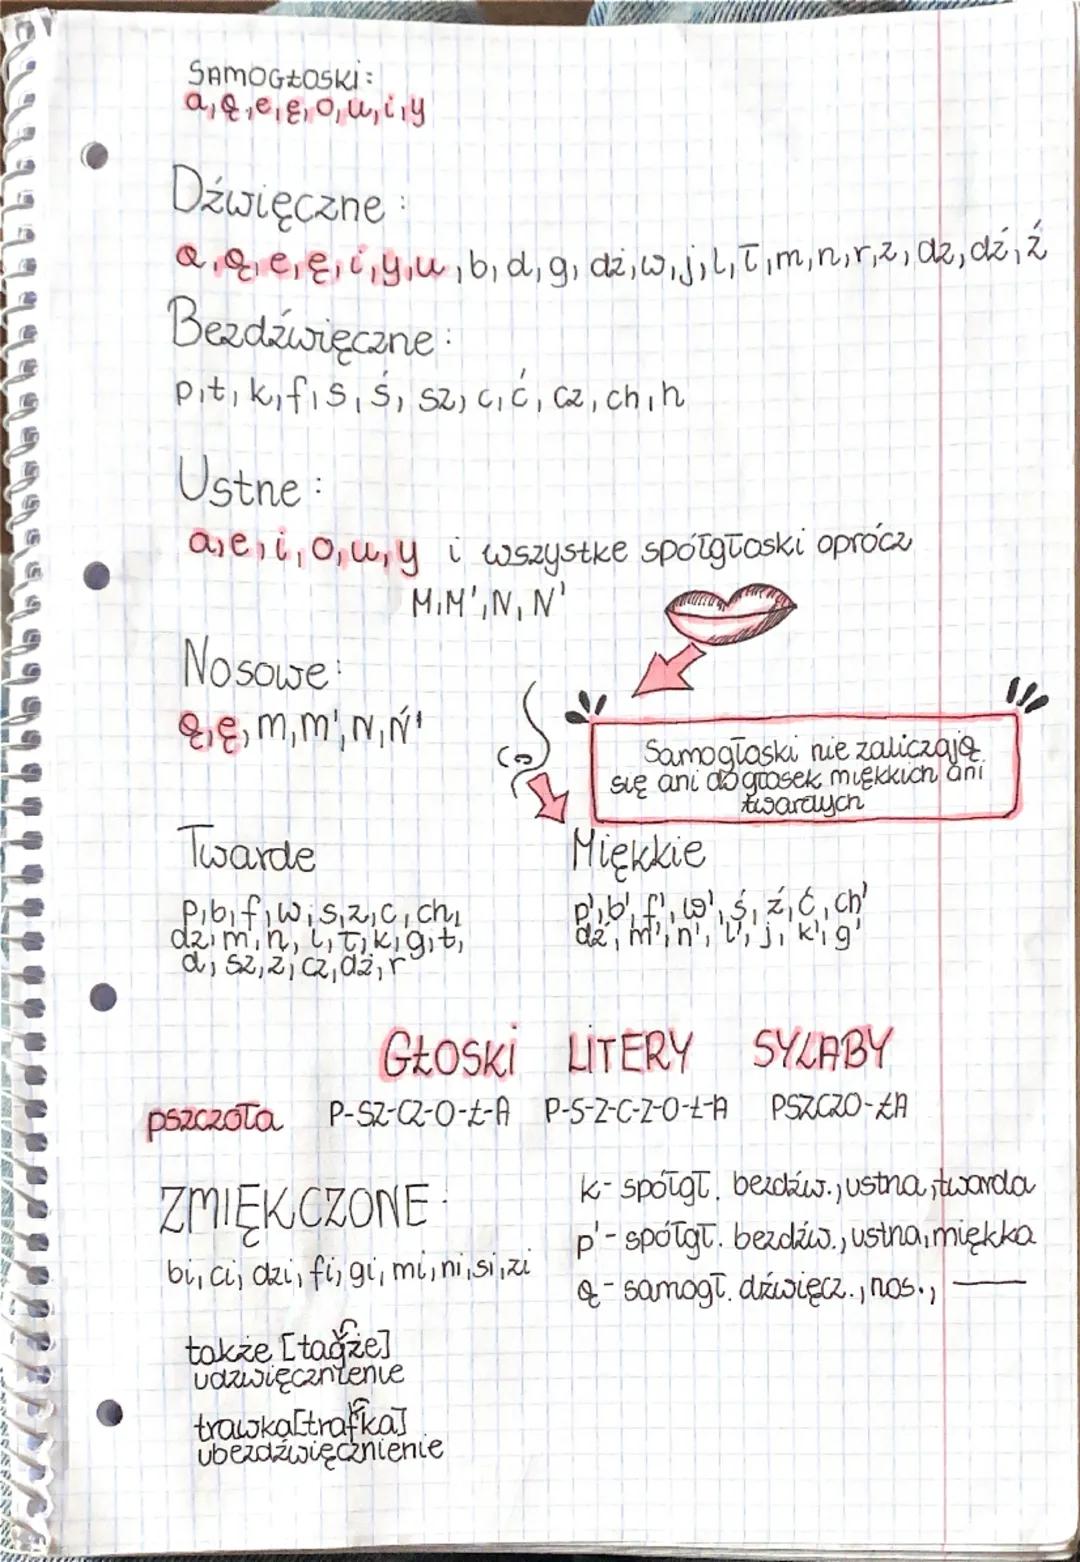 SAMOGŁOSKI:
a, ą, e, ę, o, u, i, y
Dźwięczne:
a, ą, e, ę, i, y, u, b, d, g, dż, w, j, l, ł, m, n, r, z, dz, dź, ź
Bezdźwięczne:
p, t, k, f, s, ś, sz, c, ć, cz, ch, h
Ustne:
a, e, i, o, u, y i wszystke spółgłoski oprócz
M, M', N, N'
Nosowe:
ą, ę, m, m', N, Ń'
Samogłoski nie zaliczają
się ani do głosek miękkich ani
twardych
Twarde
p, b, f, w, s, z, c, ch,
dz, m, n, l, ł, k, g, t,
d, sz, ż, cz, dż, r
Miękkie
p', b', f', w', ś, ź, ć, ch'
dź, m', n', l', j, k', g'
GŁOSKI LITERY SYLABY
pszczoła P-SZ-CZ-O-Ł-A P-S-Z-C-Z-O-Ł-A PSZCZO-ŁA
ZMIĘKCZONE:
bi, ci, dzi, fi, gi, mi, ni, si, zi
k - spółgł. bezdźw., ustna, twarda
p' - spółgł. bezdźw., ustna, miękka
ą - samogł. dźwięcz., nos., —
także [tagże]
udźwięcznienie
trawka [trafka]
ubezdźwięcznienie